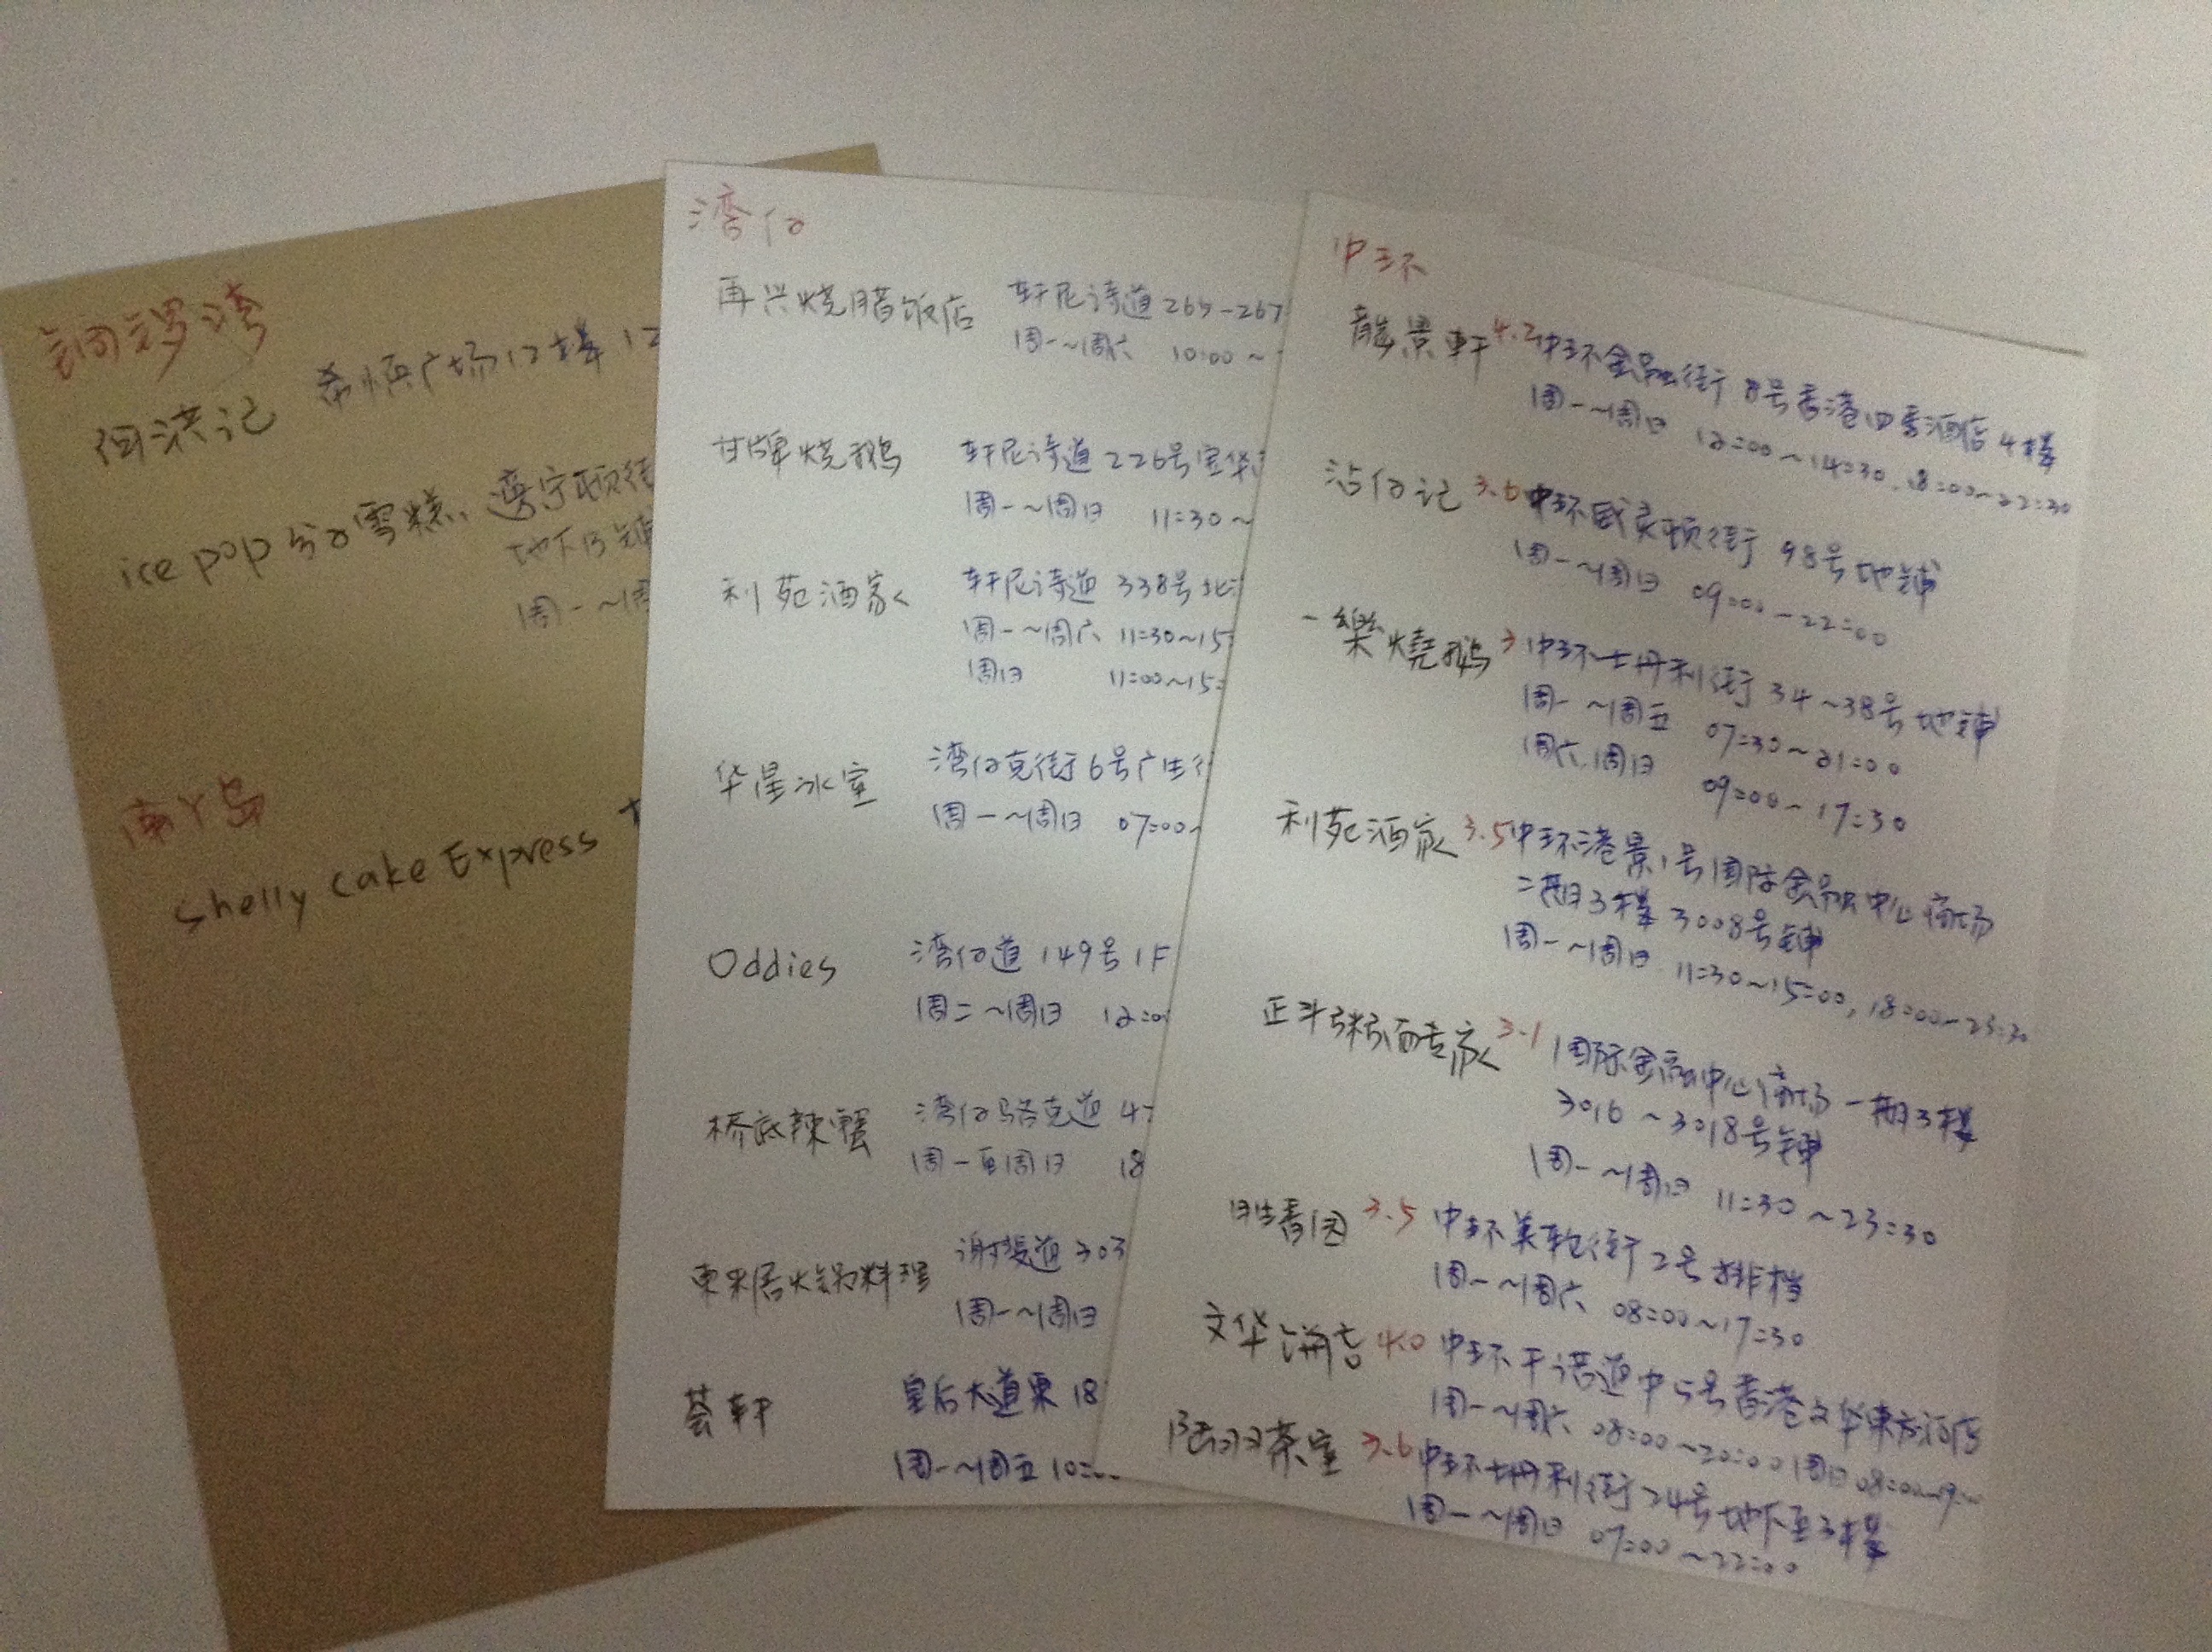 铜锣湾
何洪记 希慎广场12楼 12
ice pop 分子雪糕 遵宁顿街
地下B铺
周一~周
南丫岛
shelly cake Express
湾仔
再兴烧腊饭店 轩尼诗道 265-267
周一~周六 10:00~
甘牌烧鹅 轩尼诗道 226号宝华
周一~周日 11:30~
利苑酒家 轩尼诗道 338号北
周一~周六 11:30~15:
周日 11:00~15:
华星冰室 湾仔克街6号广生行
周一~周日 07:00~
Oddies 湾仔道 149号 1F
周二~周日 12:00
桥底辣蟹 湾仔骆克道 4
周一至周日 18
東来居火锅料理 谢斐道 303
周一~周日
荟軒 皇后大道東 18
周一~周五 10:00
中环
龍景軒 4.2 中环金融街 8号香港四季酒店 4楼
周一~周日 12:00~14:30, 18:00~22:30
沾仔记 3.6 中环威灵顿街 98号地铺
周一~周日 09:00-22:00
一樂燒鹅 3 中环士丹利街 34~38号地铺
周一~周五 07:30~21:00
周六,周日 09:00~17:30
利苑酒家 3.5 中环港景1号国际金融中心商场
二期3楼 3008号铺
周一~周日 11:30~15:00, 18:00~23:30
正斗粥面专家 3.1 国际金融中心商场一期3楼
3016~3018号铺
周一~周日 11:30~23:30
胜香园 3.5 中环美轮街2号排档
周一~周六 08:00~17:30
文华饼店 4.0 中环干诺道中5号香港文华東方酒店
周一~周六 08:00~20:00 周日 08:00~19:00
陆羽茶室 3.6 中环士丹利街 24号地下至3楼
周一~周日 07:00~22:00